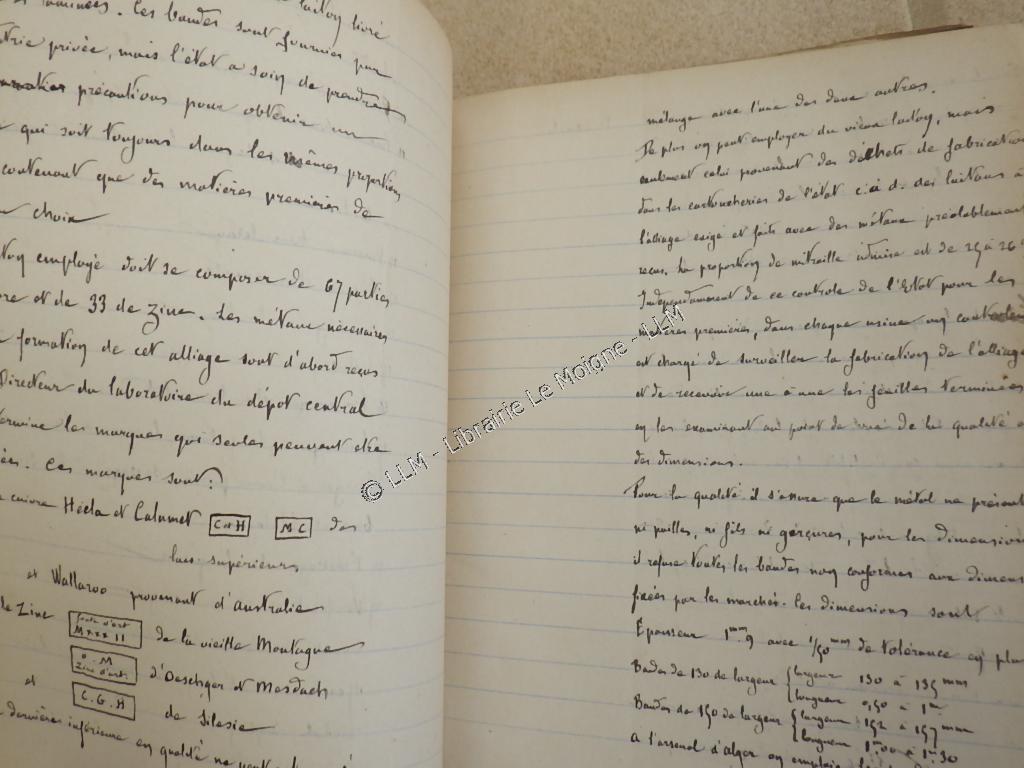 laiton livré
laminées. Ces bandes sont fournies par
privée, mais l'état a soin de prendre
précautions pour obtenir un
qui soit toujours dans les mêmes proportions
contenant que des matières premières de
choix
employé doit se composer de 67 parties
et de 33 de zinc. Les métaux nécessaires
formation de cet alliage sont d'abord reçus
Directeur du laboratoire du dépôt central
les marques qui seules peuvent être
Ces marques sont:
cuivre Hécla et Calumet C et H M C des
lacs supérieurs
et Wallaroo provenant d'australie
de Zinc fonte d'art MXXX II de la vieille Montagne
O. M Zinc d'art. d'Oeschger et Mesdach
et C.G.H de Silesie
dernière inférieure en qualité ne peut
mélange avec l'une des deux autres.
De plus on peut employer du vieux laiton, mais
seulement celui provenant des déchets de fabrication
dans les cartoucheries de l'état c.à d. des laitons à
l'alliage exigé et faits avec des métaux préalablement
reçus. La proportion de mitraille admise est de 25 à 26
Indépendamment de ce controle de l'Etat pour les
matières premières, dans chaque usine un controleur
est chargé de surveiller la fabrication de l'alliage
et de recevoir une à une les feuilles terminées
en les examinant au point de vue de la qualité
des dimensions.
Pour la qualité il s'assure que le métal ne présente
ni pailles, ni fils ni gerçures, pour les dimensions
il refuse toutes les bandes non conformes aux dimens
fixées par les marchés. les dimensions sont
Epaisseur 1mm,9 avec 1/50 mm de tolérance en plus
Bandes de 130 de largeur { largeur 130 à 135 mm
{ longueur 0,50 à 1m
Bandes de 150 de largeur { largeur 152 à 157 mm
{ longueur 1m00 à 1m30
A l'arsenal d'alger on emploie
© LLM - Librairie Le Moigne - LLM